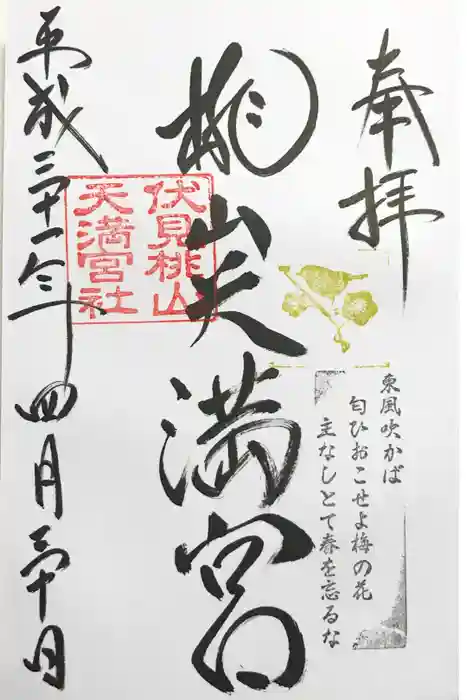 奉拝
東風吹かば
匂ひおこせよ梅の花
主なしとて春を忘るな
桃山天満宮
伏見桃山
天満宮社
平成三十一年四月三十日